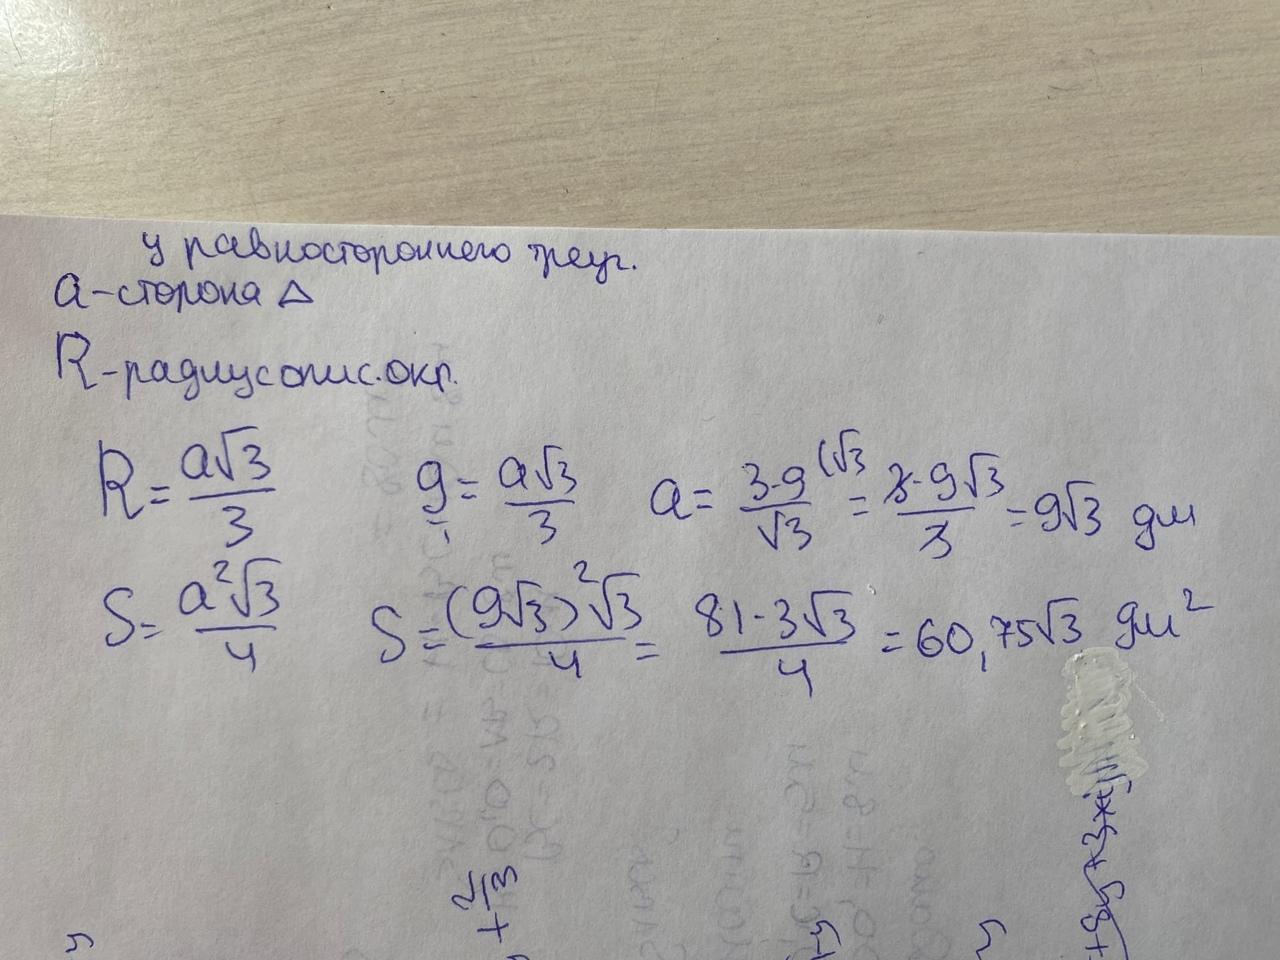 у равностороннего треуг.
a-сторона △
R-радиус опис.окр.
R = a√3/3   9 = a√3/3   a = 3·9/√3 (√3 = 3·9√3/3 = 9√3 дм
S = a²√3/4   S = (9√3)²√3/4 = 81·3√3/4 = 60,75√3 дм²
+ 2/3